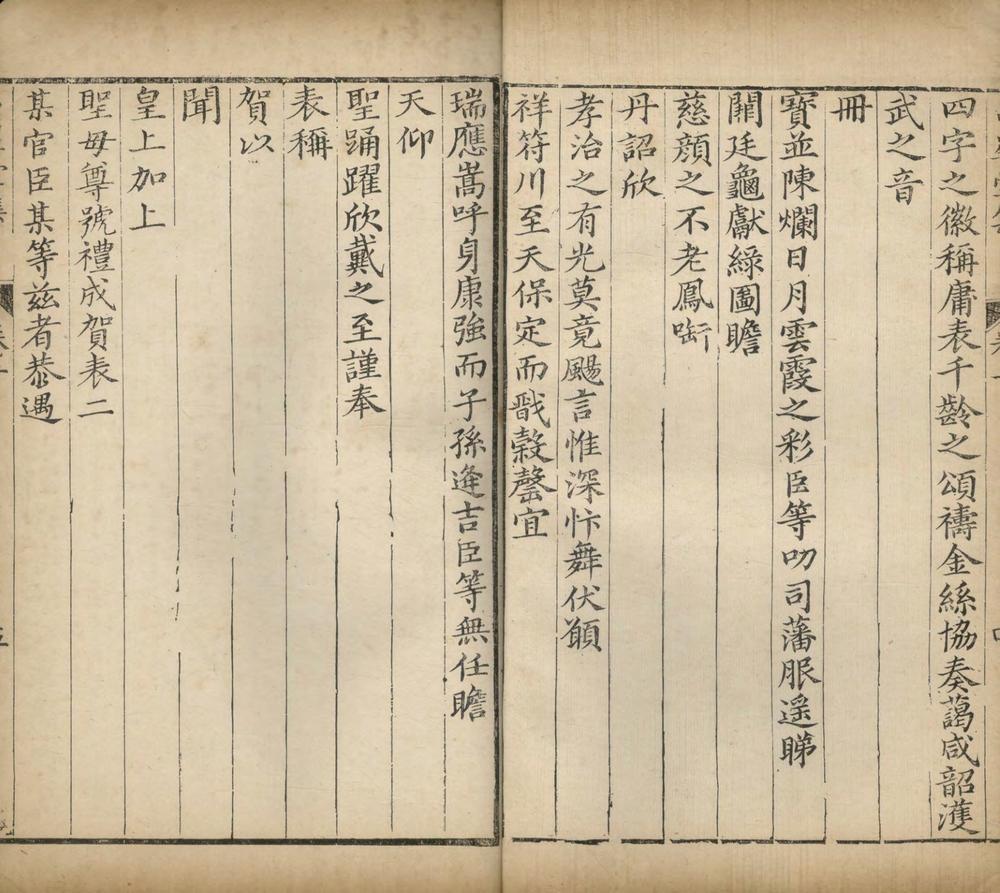 四字之徽稱庸表千齡之頌禱金絲協奏藹咸韶濩
武之音
冊
寶並陳爛日月雲霞之彩臣等叨司藩服遥睇
闕廷龜獻綠圖瞻
慈顏之不老鳳㘅
丹詔欣
孝治之有光莫竟颺言惟深忭舞伏願
祥符川至天保定而戩穀罄宜
瑞應嵩呼身康強而子孫逄吉臣等無任瞻
天仰
聖踊躍欣戴之至謹奉
表稱
賀以
聞
皇上加上
聖母尊號禮成賀表二
某官臣某等兹者恭遇